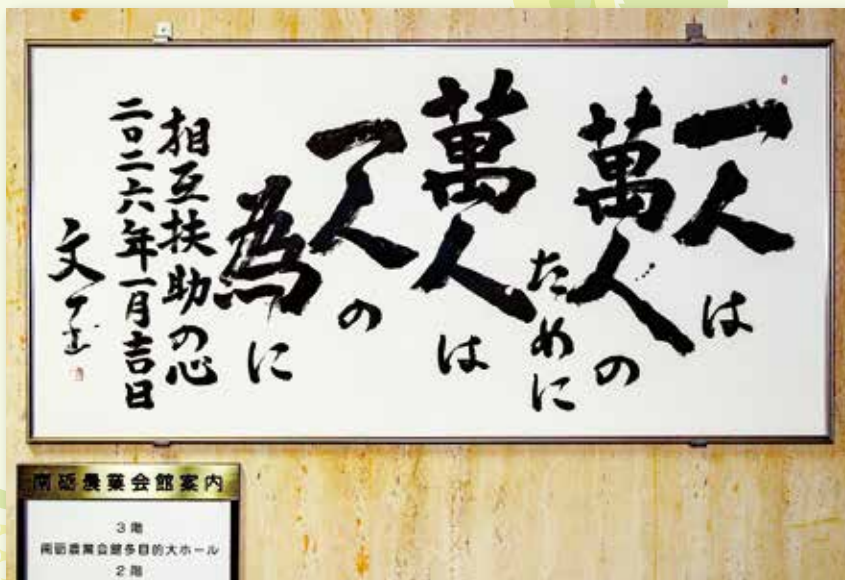 一人は
萬人の
ために
萬人は
一人の
為に
相互扶助の心
二〇二六年一月吉日
南砺農業会館案内
3階
南砺農業会館多目的大ホール
2階